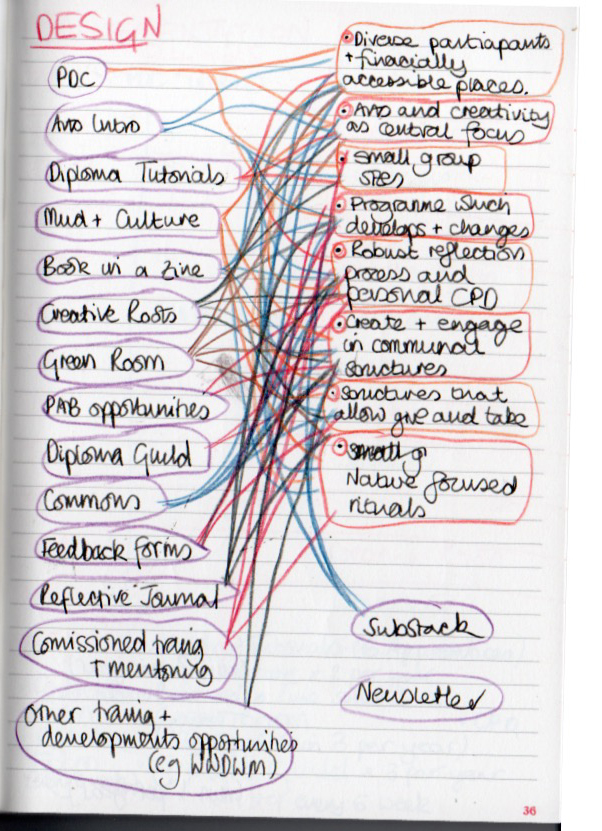 DESIGN
PDC
Intro
Diploma Tutorials
Mud + Culture
Book in a Zine
Creative Roots
Green Room
PAB opportunities
Diploma Guild
Commons
Feedback forms
Reflective Journal
Comissioned traing
+ mentoring
Other traing +
developments opportunities
(eg WWDWM)
Diverse participants
+ finacially
accessible places.
and creativity
as central focus
Small group
Programme which
develops + changes
Robust reflection
process and
personal CPD
Create + engage
in communal
structures
Structures that
allow give and take
small gr
Native focused
rituals
Substack
Newsletter
36